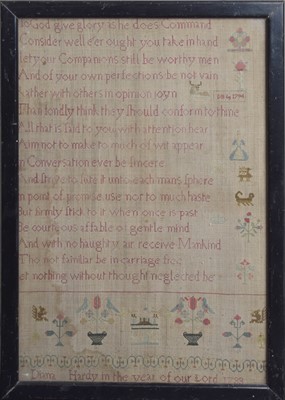 to God give glory as he does Command
Consider well e'er ought you take in hand
let your Companions still be worthy men
And of your own perfections be not vain
Rather with others in opinion joyn
Than fondly think they Should conform to thine
All that is Said to you with attention hear
Aim not to make to much of wit appear
In Conversation ever be Sincere
And Strive to Suit it unto each mans Sphere
In point of promise use not to much haste
But firmly Stick to it when once is past
Be courteous affable of gentle mind
And with no haughty air receive Mankind
Tho not familiar be in carriage free
let nothing without thought neglected be
Hardy in the year of our Lord